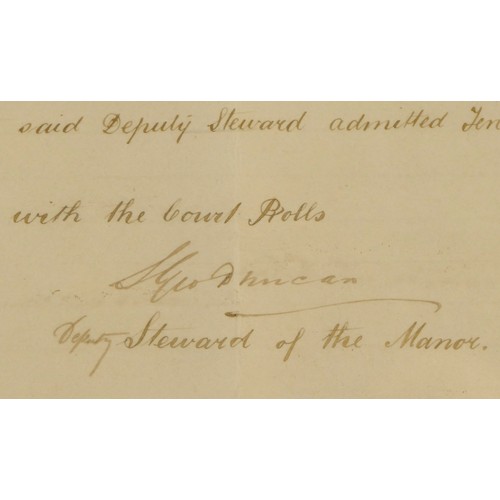 said Deputy Steward admitted Ten
with the Court Rolls
S Geo Duncan
Deputy Steward of the Manor.